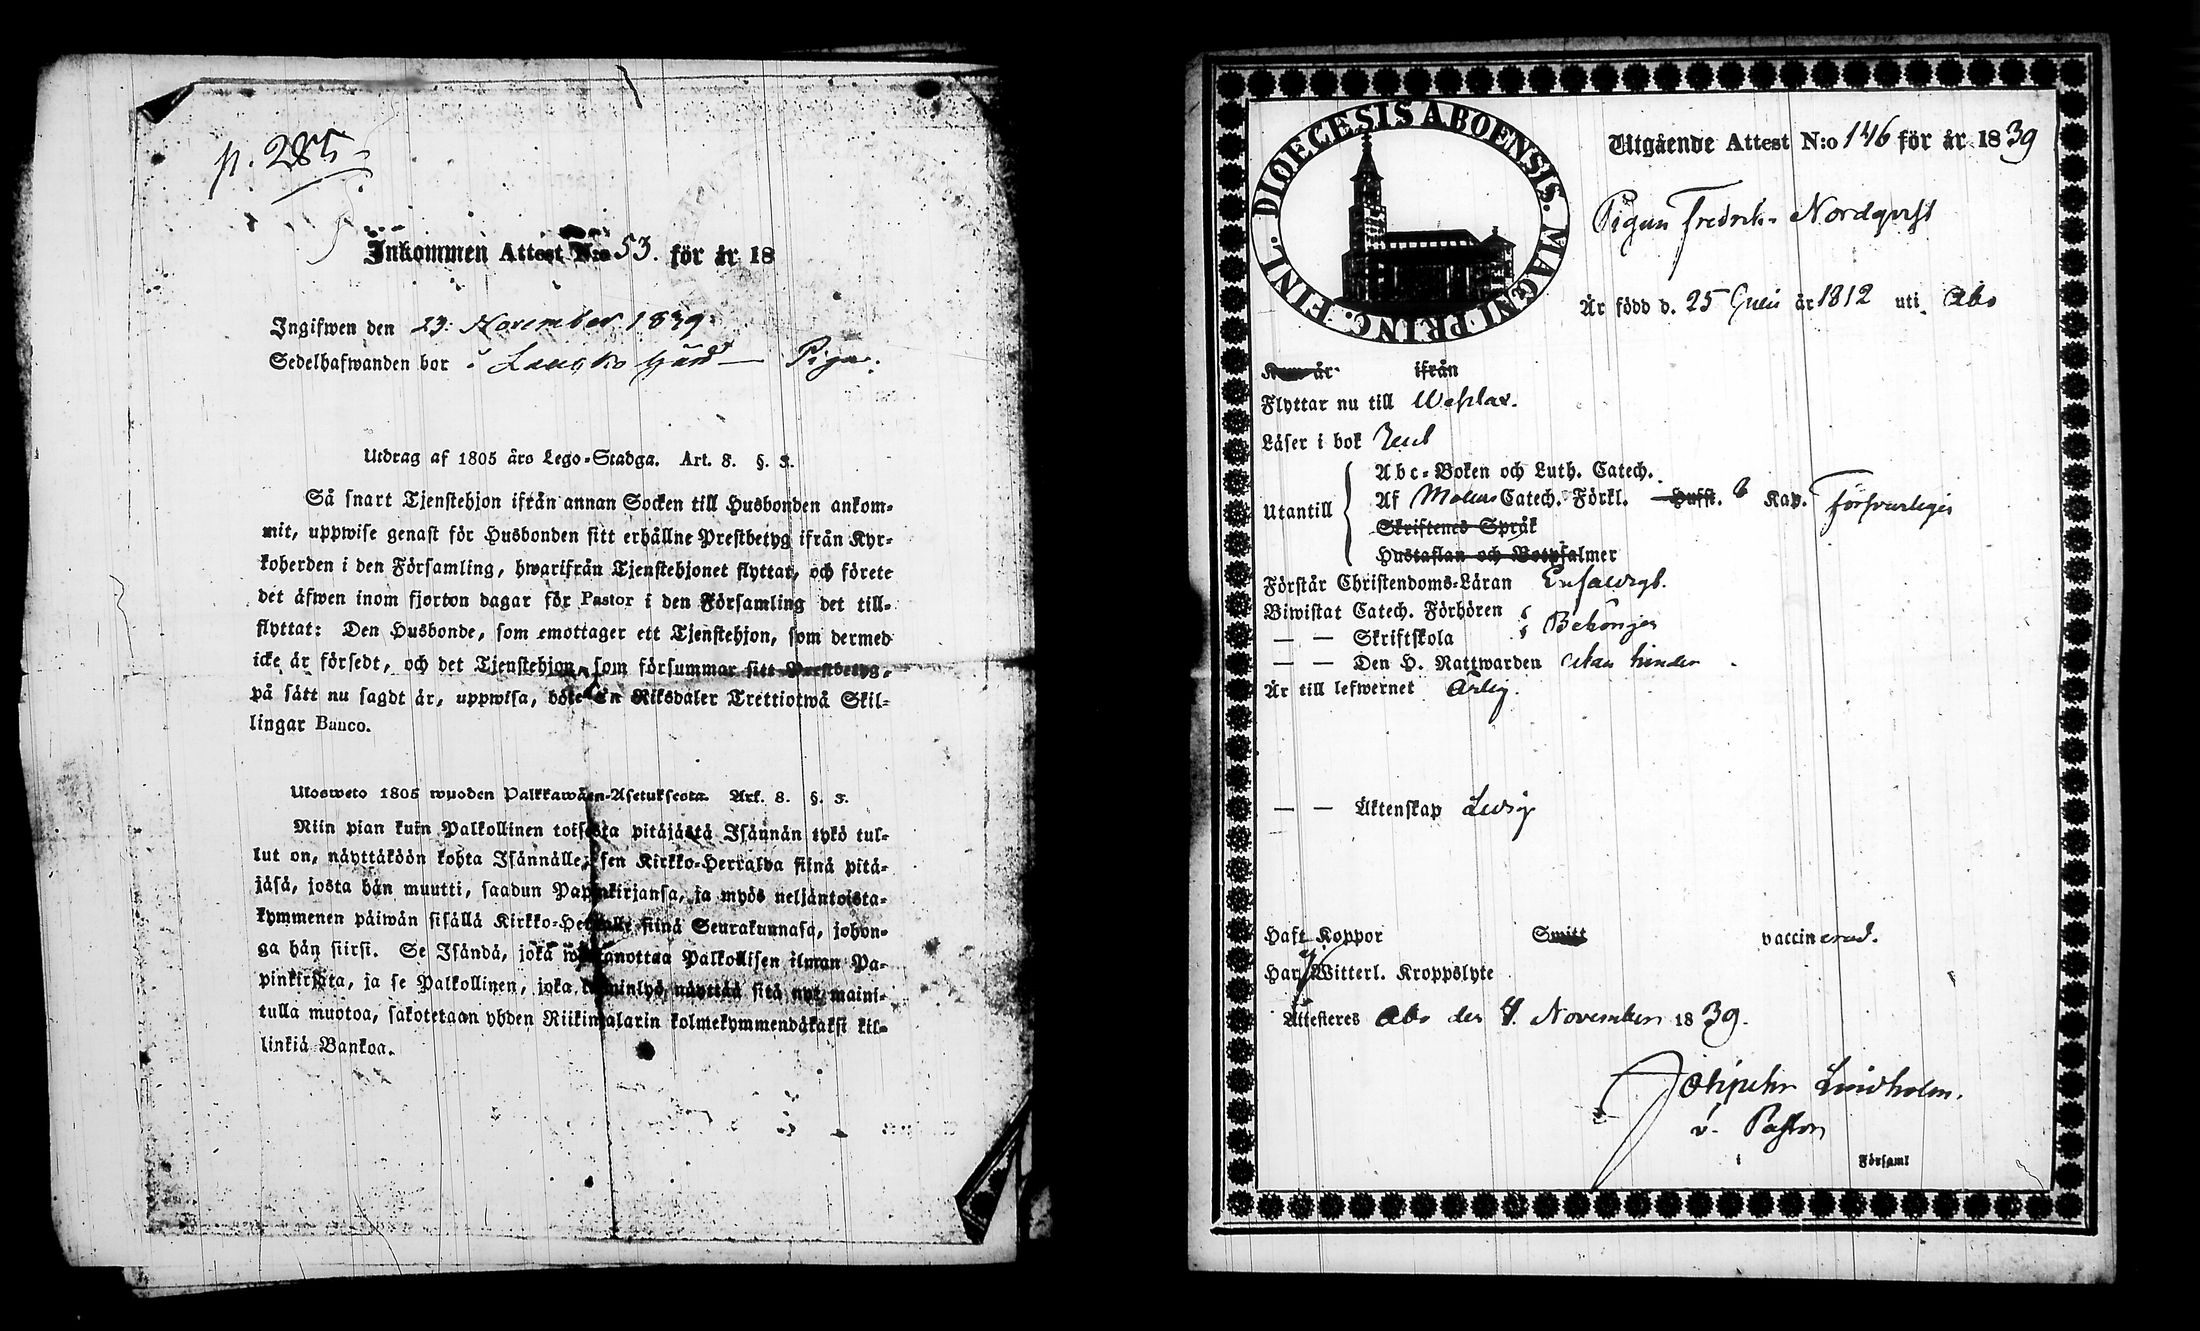 p. 285
Inkommen Attest N:o 53. för år 18
Ingifwen den 23 November 1839
Sedelhafwanden bor i gård — Piga.
Utdrag af 1805 års Lego-Stadga. Art. 8. §. 3.
Så snart Tjenstehjon ifrån annan Socken till Husbonden ankom-
mit, uppwise genast för Husbonden sitt erhållne Prestbetyg ifrån Kyr-
koherden i den Församling, hwarifrån Tjenstehjonet flyttat, och förete
det äfwen inom fjorton dagar för Pastor i den Församling det till-
flyttat: Den Husbonde, som emottager ett Tjenstehjon, som dermed
icke är försedt, och det Tjenstehjon, som försummar sitt Prestbetyg,
på sätt nu sagdt är, uppwisa, böte en Riksdaler Trettiotwå Skil-
lingar Banco.
Ulosweto 1805 wuoden Palkkawäen-Asetuksesta. Art. 8. §. 3.
Niin pian kuin Palkollinen toisesta pitäjästä Isännän tykö tul-
lut on, näyttäköön kohta Isännälle, sen Kirkko-Herralda siinä pitä-
jäsä, josta hän muutti, saadun Papinkirjansa, ja myös neljäntoista-
kymmenen päiwän sisällä Kirkko-Herralle siinä Seurakunnasa, johon-
ga hän siirsi. Se Isändä, joka wastanottaa Palkollisen ilman Pa-
pinkirjata, ja se Palkollinen, joka laiminlyö näyttää sitä nyt maini-
tulla muotoa, sakotetaan yhden Riikintalarin kolmekymmendäkaksi kil-
linkiä Bankoa.
DIOECESIS ABOENSIS. MAGNI PRINC. FINL.
Utgående Attest N:o 146 för år 1839
Pigan Fredrika Nordqvist
Är född d. 25 Junii år 1812 uti Åbo
Kom år ifrån
Flyttar nu till
Läser i bok
Utantill
Abc-Boken och Luth. Catech.
Af Catech. Förkl. Husst. 6 Kap. Försvarligen
Skriftenes Språk
Hustaflan och Botpsalmer
Förstår Christendoms-Läran Enfaldigt.
Biwistat Catech. Förhören
— — Skriftskola Behörigen
— — Den H. Nattwarden utan hinder
Är till lefwernet Ärlig.
— — Äktenskap Ledig
Haft Koppor Smitt vaccinerad.
Har ej Witterl. Kroppslyte
Attesteres Åbo den 4. November 1839.
Lindholm.
v. Pastor
i Församl